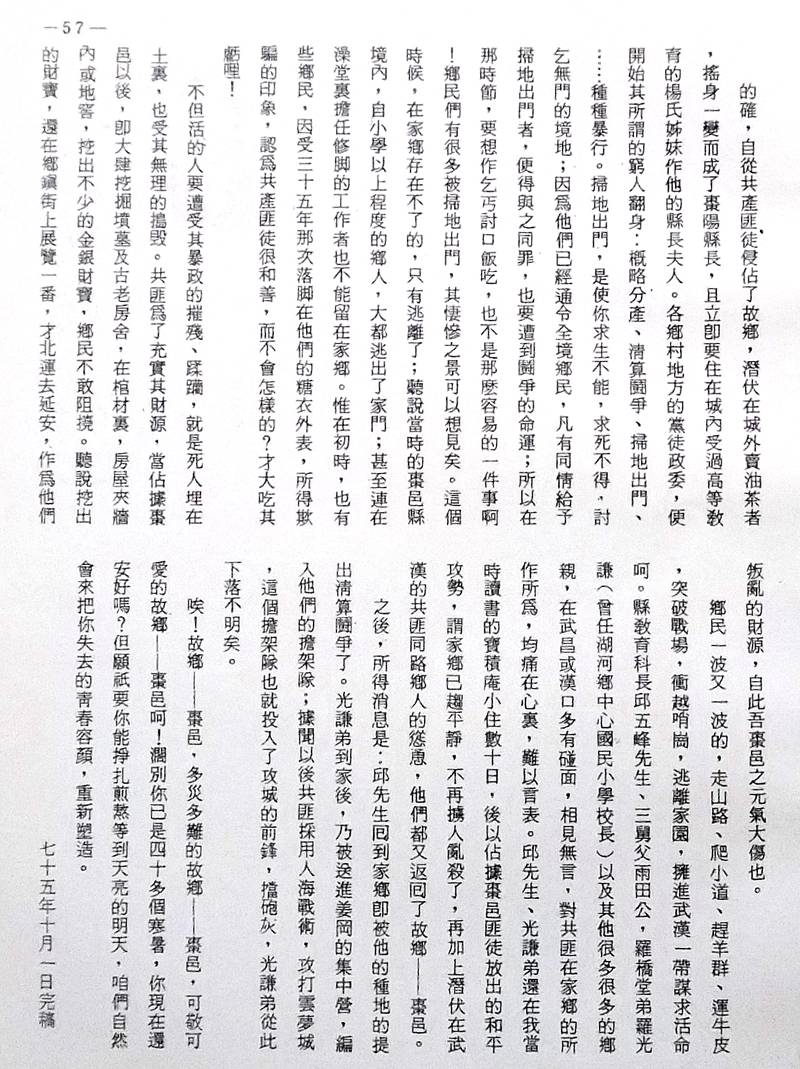 —57—
的確，自從共產匪徒侵佔了故鄉，潛伏在城外賣油茶者
，搖身一變而成了棗陽縣長，且立卽要住在城內受過高等教
育的楊氏姊妹作他的縣長夫人。各鄉村地方的黨徒政委，便
開始其所謂的窮人翻身：概略分產、淸算鬪爭、掃地出門、
……種種暴行。掃地出門，是使你求生不能，求死不得，討
乞無門的境地；因爲他們已經通令全境鄉民，凡有同情給予
掃地出門者，便得與之同罪，也要遭到鬪爭的命運；所以在
那時節，要想作乞丐討口飯吃，也不是那麽容易的一件事啊
！鄉民們有很多被掃地出門，其悽慘之景可以想見矣。這個
時候，在家鄉存在不了的，只有逃離了；聽說當時的棗邑縣
境內，自小學以上程度的鄉人，大都逃出了家門；甚至連在
澡堂裏擔任修脚的工作者也不能留在家鄉。惟在初時，也有
些鄉民，因受三十五年那次落脚在他們的糖衣外表，所得欺
騙的印象，認爲共產匪徒很和善，而不會怎樣的？才大吃其
虧哩！
不但活的人要遭受其暴政的摧殘、蹂躪，就是死人埋在
土裏，也受其無理的搗毀。共匪爲了充實其財源，當佔據棗
邑以後，卽大肆挖掘墳墓及古老房舍，在棺材裏，房屋夾牆
內或地窖，挖出不少的金銀財寶，鄉民不敢阻撓。聽說挖出
的財寶，還在鄉鎭街上展覽一番，才北運去延安，作爲他們
叛亂的財源，自此吾棗邑之元氣大傷也。
鄉民一波又一波的，走山路、爬小道、趕羊群、運牛皮
，突破戰場，衝越哨崗，逃離家園，擁進武漢一帶謀求活命
呵。縣敎育科長邱五峰先生、三舅父雨田公，羅橋堂弟羅光
謙（曾任湖河鄉中心國民小學校長）以及其他很多很多的鄉
親，在武昌或漢口多有碰面，相見無言，對共匪在家鄉的所
作所爲，均痛在心裏，難以言表。邱先生、光謙弟還在我當
時讀書的寶積庵小住數十日，後以佔據棗邑匪徒放出的和平
攻勢，謂家鄉已趨平靜，不再擄人亂殺了，再加上潛伏在武
漢的共匪同路鄉人的慫恿，他們都又返囘了故鄉——棗邑。
之後，所得消息是：邱先生囘到家鄉卽被他的種地的提
出淸算鬪爭了。光謙弟到家後，乃被送進姜岡的集中營，編
入他們的擔架隊；據聞以後共匪採用人海戰術，攻打雲夢城
，這個擔架隊也就投入了攻城的前鋒，擋砲灰，光謙弟從此
下落不明矣。
唉！故鄉——棗邑，多災多難的故鄉——棗邑，可敬可
愛的故鄉——棗邑呵！濶別你已是四十多個寒暑，你現在還
安好嗎？但願祇要你能掙扎煎熬等到天亮的明天，咱們自然
會來把你失去的靑春容顏，重新塑造。
七十五年十月一日完稿